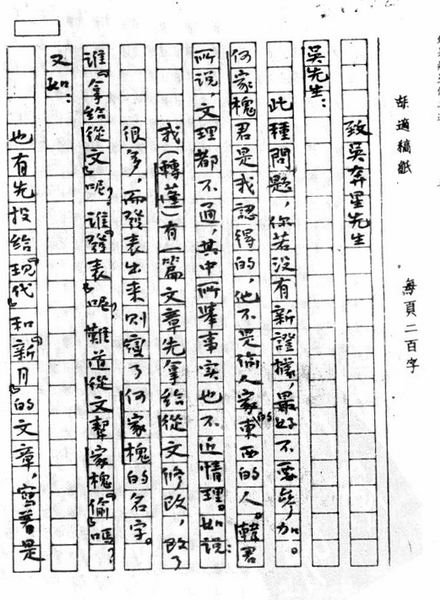 胡適稿紙
每頁二百字
致吳奔星先生
吳先生：
此種問題，你若沒有新證據，最好不要參加。
何家槐君是我認得的，他不是偷人家東西的人。韓君
所说文理都不通，其中所舉事实也不近情理。如说：
我（轉蓬）有一篇文章先拿給從文修改，改了
很多，而發表出来则變了何家槐的名字。
谁「拿給從文」呢？谁「發表」呢？難道從文幫家槐「偷」嗎？
又如：
也有先投給「現代」和「新月」的文章，

是